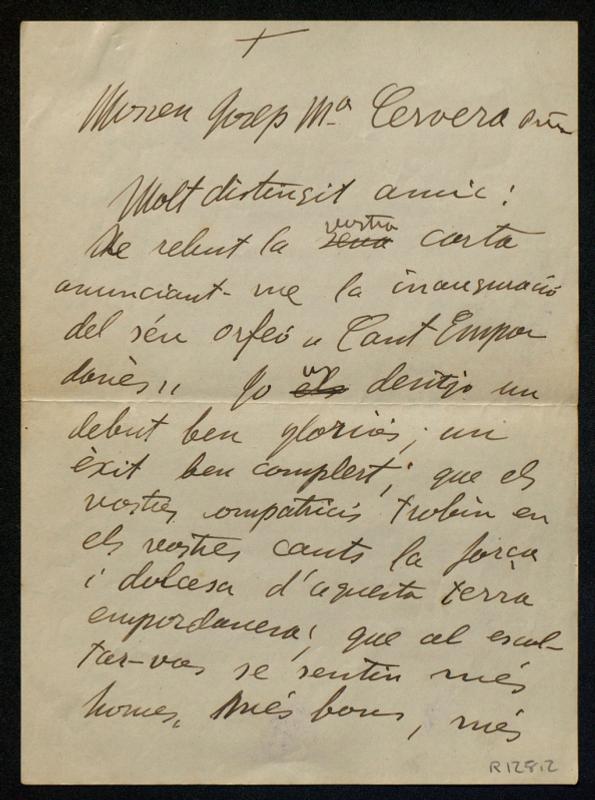 Mossen Josep Mª Cervera
Molt distingit amic:
He rebut la vostra carta
anunciant-me la inauguració
del séu orfeó "Cant Empor
danès". Jo us desitjo un
debut ben gloriós; un
èxit ben complert; que els
vostres compatricis trobin en
els vostres cants la força
i dolcesa d'aquesta terra
empordanesa; que al escol-
tar-vos se sentin més
homes, més bons, més
R.128.2